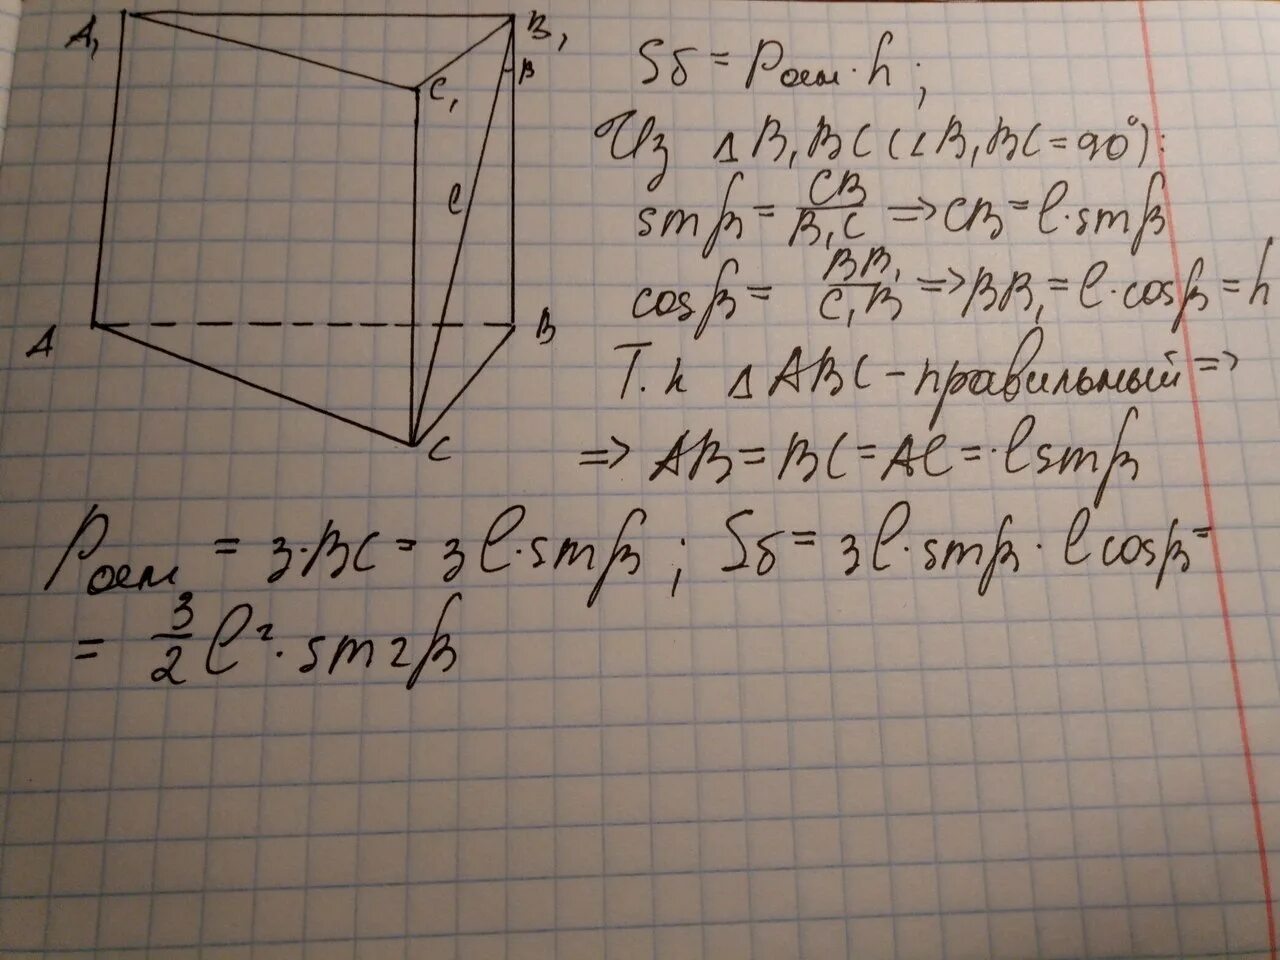 A₁ B₁
β
C₁
l
A B
C
Sб = Pосн · h ;
Из △B₁BC (∠B₁BC = 90°):
sinβ = CB/B₁C => CB = l · sinβ
cosβ = BB₁/C₁B => BB₁ = l · cosβ = h
Т.к △ABC - правильный =>
=> AB = BC = AC = · l sinβ
Pосн = 3 · BC = 3l · sinβ ; Sб = 3l · sinβ · l cosβ =
= 3/2 l² · sin2β